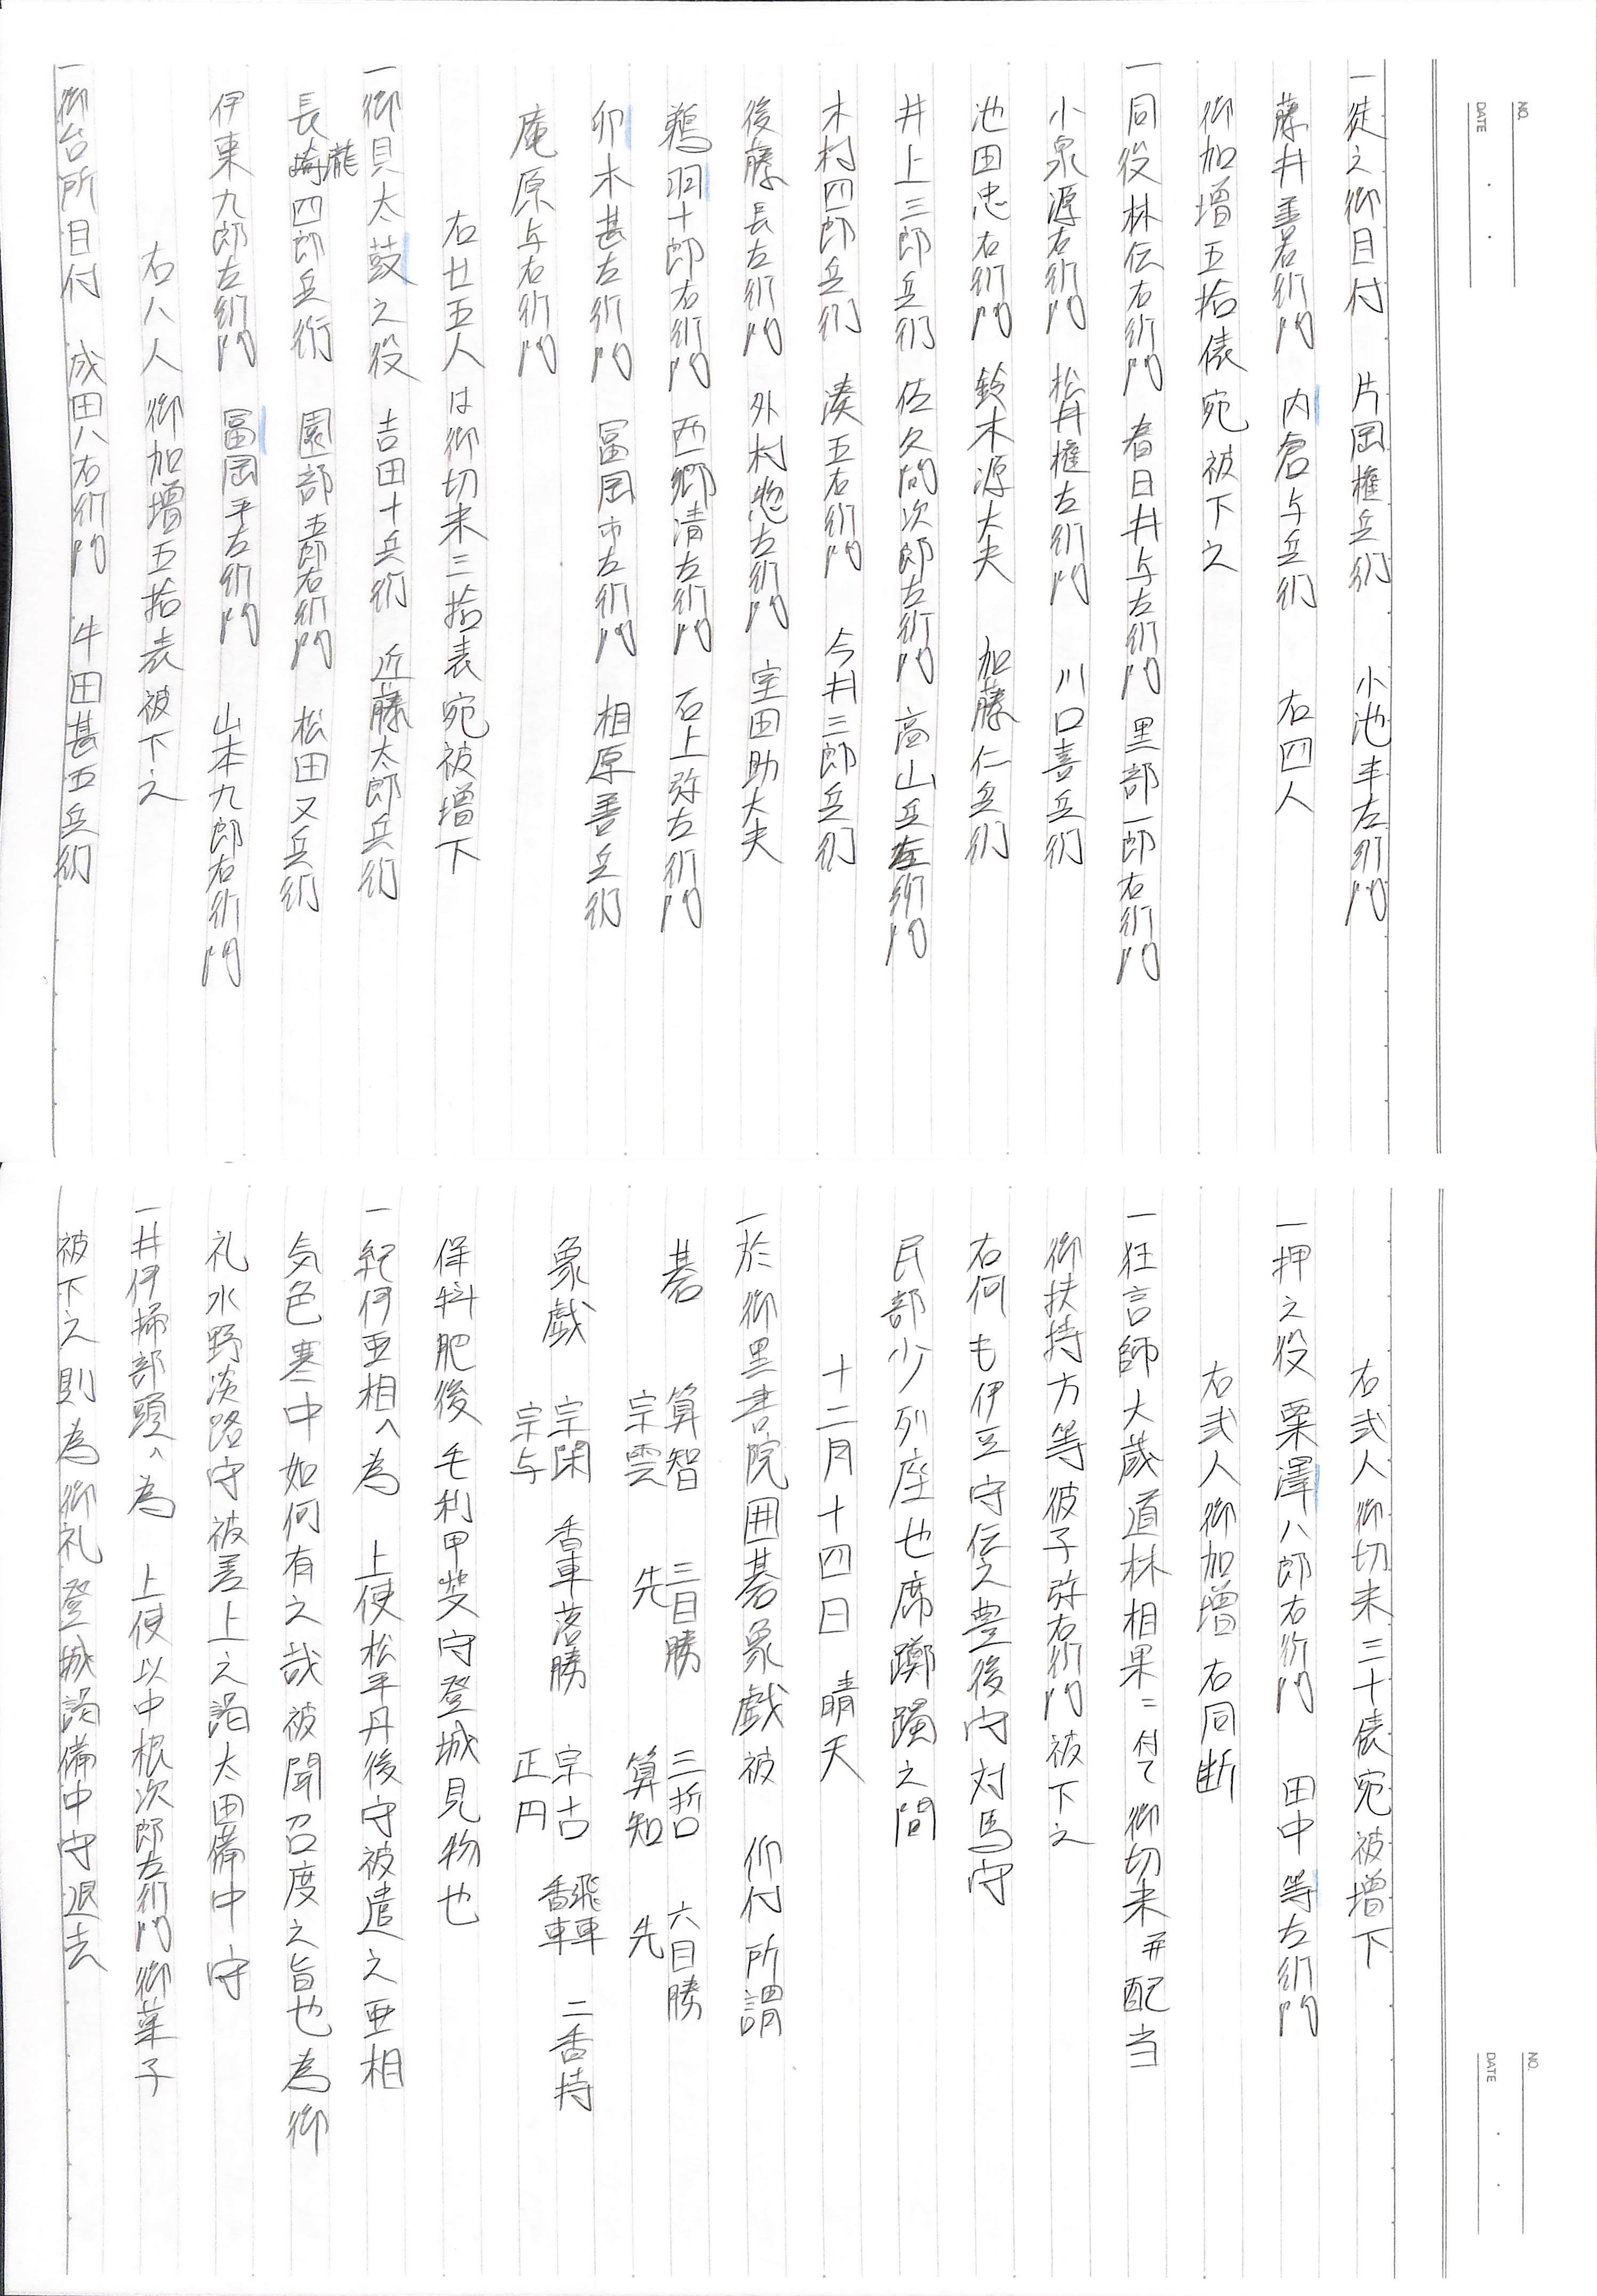 NO.
DATE
一徒之御目付　片岡権兵衛　小池半左衛門
藤井善右衛門　内倉与兵衛　右四人
御加増五拾俵宛被下之
一同役林伝右衛門　春日井与左衛門　黒部一郎右衛門
小泉源右衛門　松井権左衛門　川口喜兵衛
池田忠右衛門　鈴木源大夫　加藤仁兵衛
井上三郎兵衛　佐久間次郎左衛門　高山兵左衛門
木村四郎兵衛　湊五右衛門　今井三郎兵衛
後藤長左衛門　外村惣左衛門　室田助大夫
鵜羽十郎右衛門　西郷清左衛門　石上弥左衛門
卯木甚左衛門　冨岡市左衛門　相原善兵衛
庵原与右衛門
右廿五人は御切米三拾表宛被増下
一御貝太鼓之役　吉田十兵衛　近藤太郎兵衛
長崎四郎兵衛　園部五郎右衛門　松田又兵衛
瀧
伊東九郎左衛門　冨岡半左衛門　山本九郎右衛門
右八人御加増五拾表被下之
一御台所目付　成田八右衛門　牛田甚五兵衛
NO.
DATE
右弐人御切米三十俵宛被増下
一押之役　栗澤八郎右衛門　田中等左衛門
右弐人御加増右同断
一狂言師大蔵道林相果ニ付て御切米并配当
御扶持方等彼子弥右衛門被下之
右何も伊豆守伝之豊後守対馬守
民部少列座也席躑躅之間
十二月十四日　晴天
一於御黒書院囲碁象戯被　仰付所謂
碁　算智　三目勝　三哲　六目勝
宗雲　先　算知　先
象戯　宗閑　香車落勝　宗古　飛車　二香持
宗与　正円　香車
保科肥後　毛利甲斐守登城見物也
一紀伊亜相へ為　上使松平丹後守被遣之亜相
気色寒中如何有之哉被聞召度之旨也為御
礼水野淡路守被差上之謁太田備中守
一井伊掃部頭へ為　上使以中根次郎左衛門御菓子
被下之則為御礼登城謁備中守退去